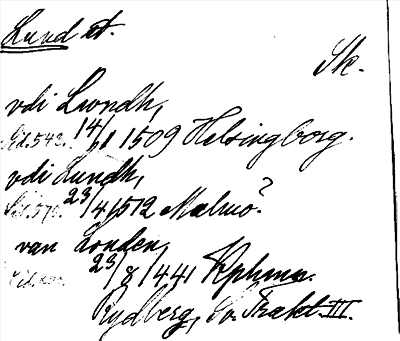 Lund st.
Sk.
vdi Lwndh,
Sid. 543. 14/11 1509 Helsingborg.
vdi Lundh,
Sid. 570. 23/4 1512 Malmö?
van Londen,
23/8 1441 Kphmn.
Rydberg, Sv. Trakt. III.